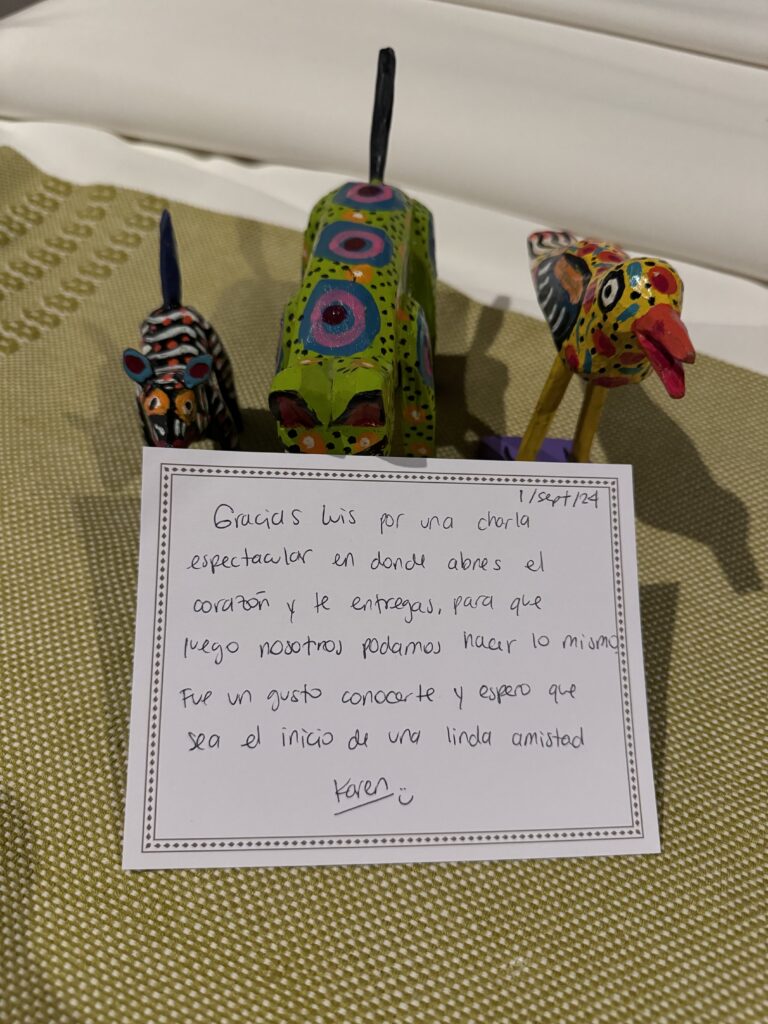 1/sept/24
Gracias Luis por una charla
espectacular en donde abres el
corazón y te entregas, para que
luego nosotros podamos hacer lo mismo.
Fue un gusto conocerte y espero que
sea el inicio de una linda amistad
Karen